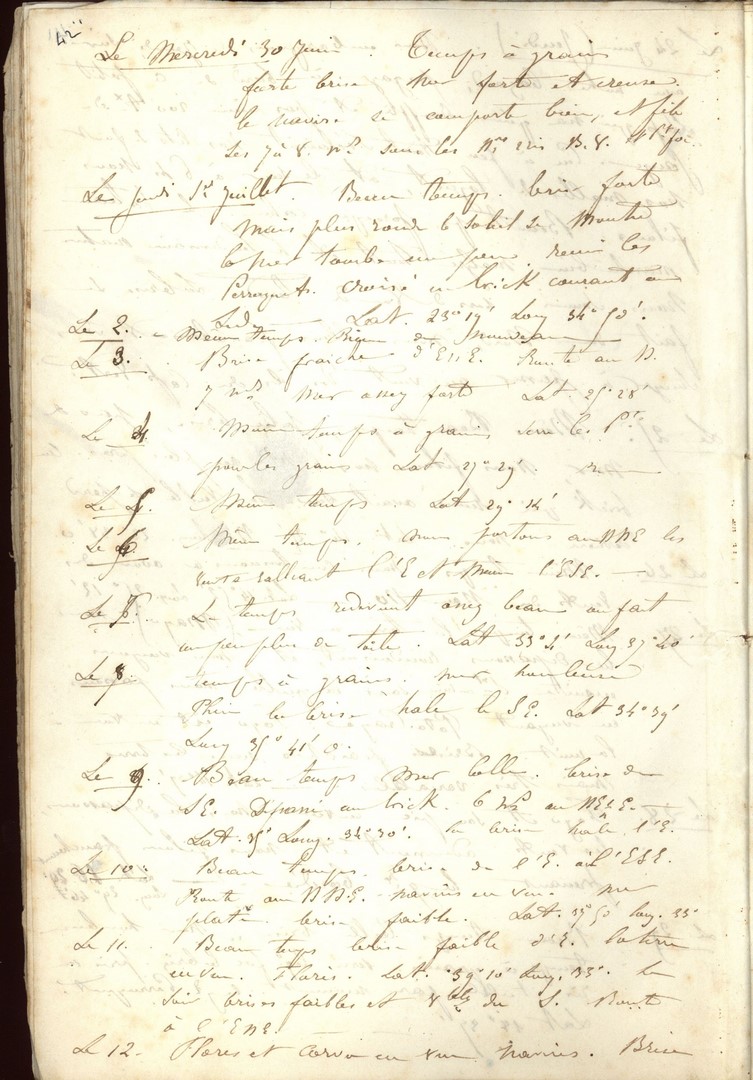 42
Le Mercredi 30 Juin. Temps à grains
forte brise Mer forte et creuse.
le navire se comporte bien, et file
ses 7 à 8 nds sous les ris
Le jeudi 1er juillet. Beau temps. brise forte
mais plus ronde le soleil se montre
la mer tombe un peu. remis les
Perroquets. croisé un brick courant au
Sud. Lat. 23° 19' Long 34° 50'.
Le 2. - Même temps. Rien de nouveau
Le 3. Brise fraiche d'ENE. Route au N.
7 nds mer assez forte Lat. 25° 28'
Le 4. Même temps à grains serré les Pts
pour les grains Lat 27° 29'.
Le 5. Même temps Lat 29° 14'
Le 6. Même temps. nous portons au NNE les
vents ralliant l'E et même l'ESE.
Le 7. Le temps redevient assez beau on fait
un peu plus de toile. Lat 33° 4' Long 37° 40'
Le 8. temps à grains. mer houleuse
la brise hale le SE. Lat 34° 39'
Long 35° 41' O.
Le 9. Beau temps mer belle. brise de
SE. Dépassé un brick. 6 nds au NE¼E.
Lat. 35° Long. 34° 30'. la brise hâle l'E.
Le 10. Beau temps. brise de l'E. à l'ESE.
Route au NNE. navires en vue. mer
plate brise faible. Lat. 37° 50' Long. 33°
Le 11. Beau temps brise faible d'E.
en vue. Floris. Lat. 39° 10' Long. 33°. Le
soir brises faibles et vbles du S. Route
à l'ENE.
Le 12. Flores et Corvo en vue navires. Brise